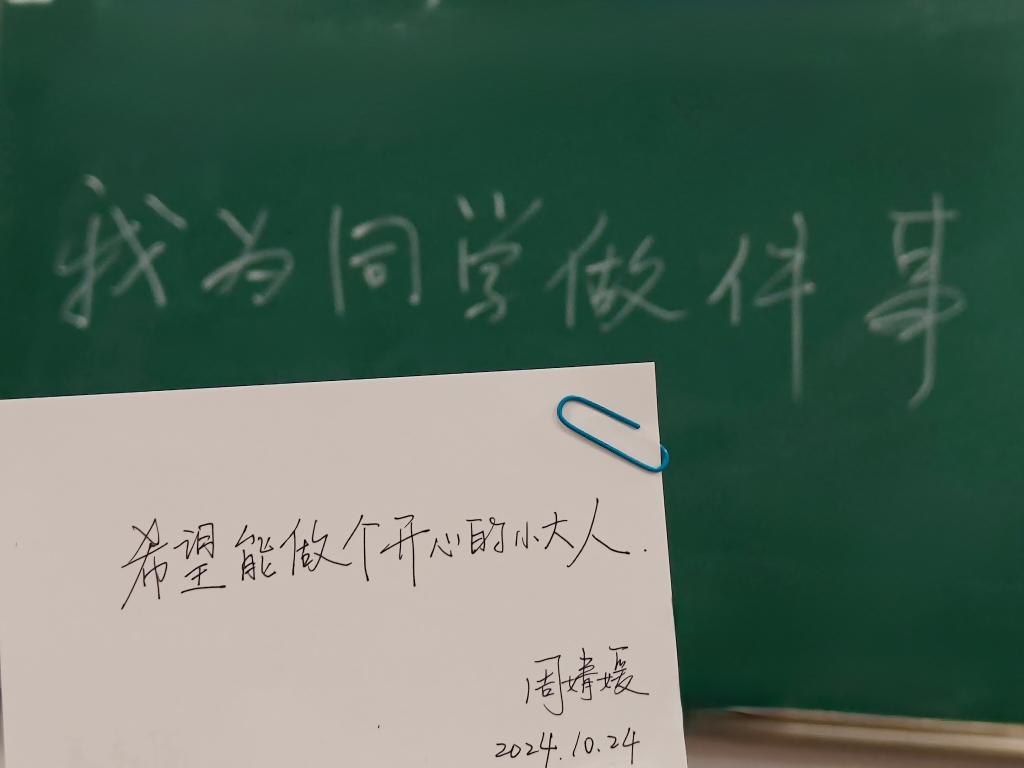 我为同学做件事
希望能做个开心的小大人.
周婧媛
2024.10.24